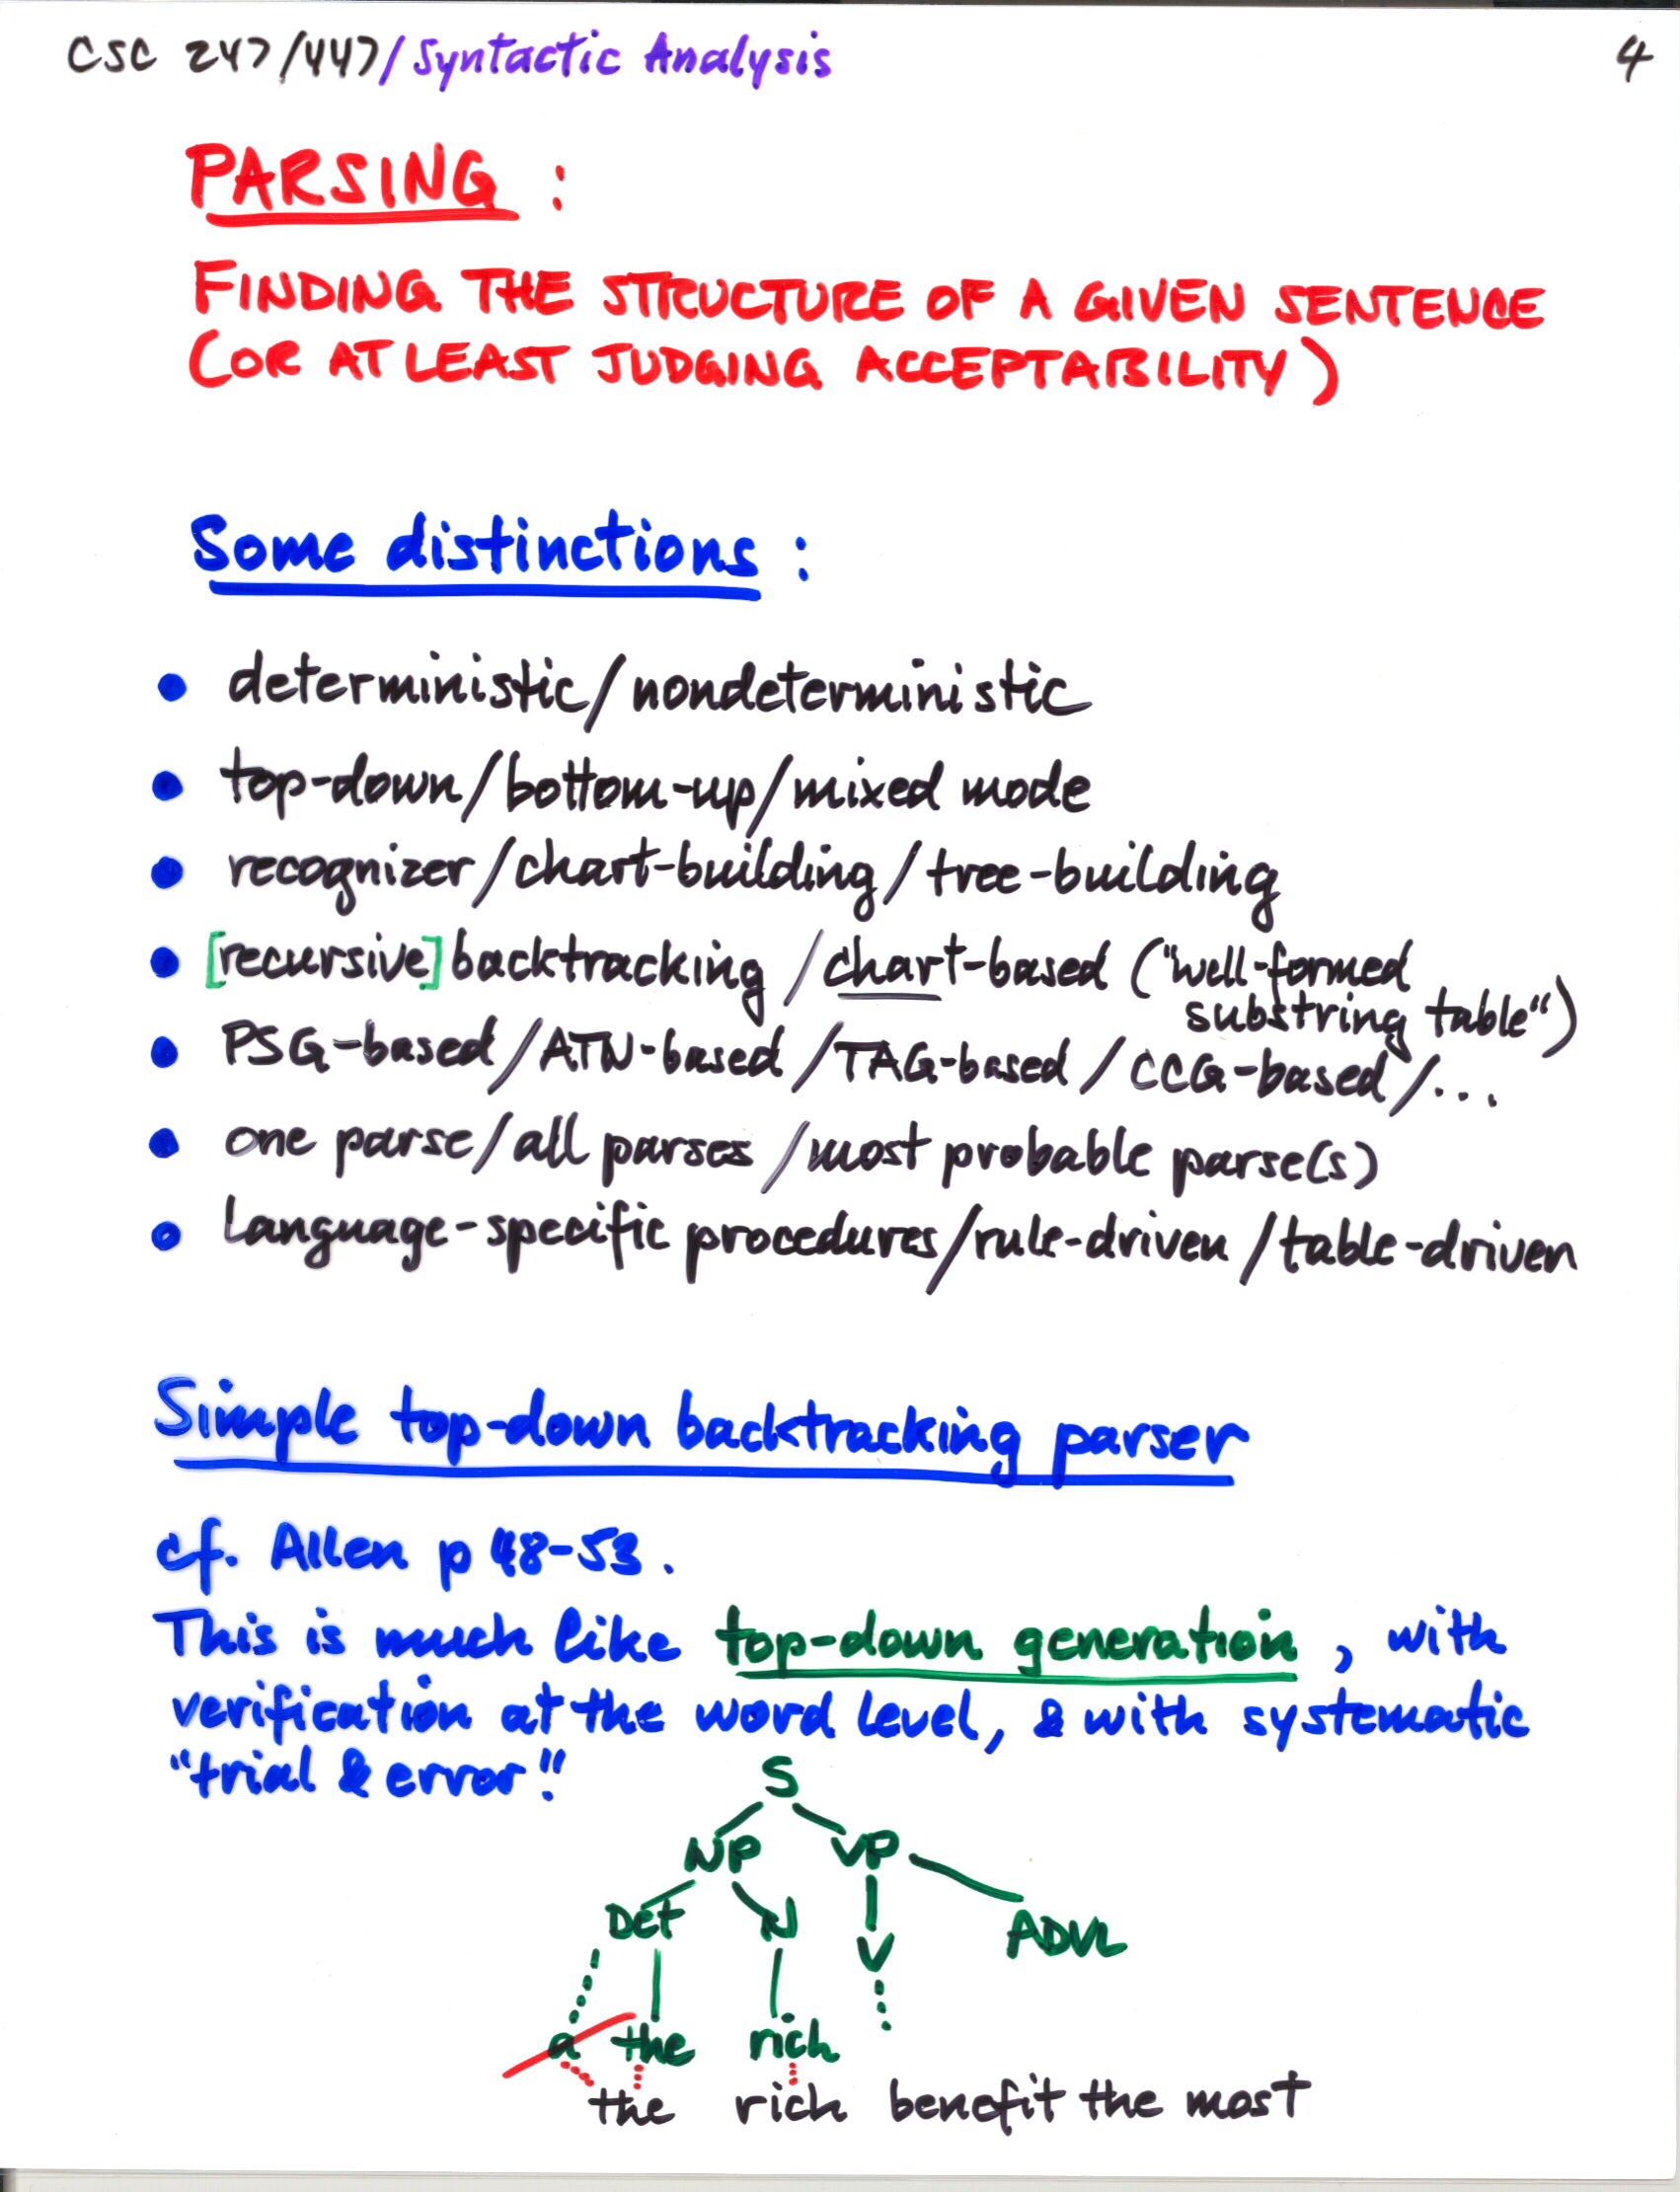 CSC 247/447/Syntactic Analysis 4
PARSING :
FINDING THE STRUCTURE OF A GIVEN SENTENCE
(OR AT LEAST JUDGING ACCEPTABILITY)
Some distinctions :
• deterministic/nondeterministic
• top-down/bottom-up/mixed mode
• recognizer/chart-building/tree-building
• [recursive] backtracking /chart-based ("well-formed
substring table")
• PSG-based/ATN-based/TAG-based/CCG-based/...
• one parse/all parses/most probable parse(s)
• Language-specific procedures/rule-driven/table-driven
Simple top-down backtracking parser
cf. Allen p 48-53.
This is much like top-down generation, with
verification at the word level, & with systematic
"trial & error".
S
NP VP
Det N V ADVL
a the rich
the rich benefit the most